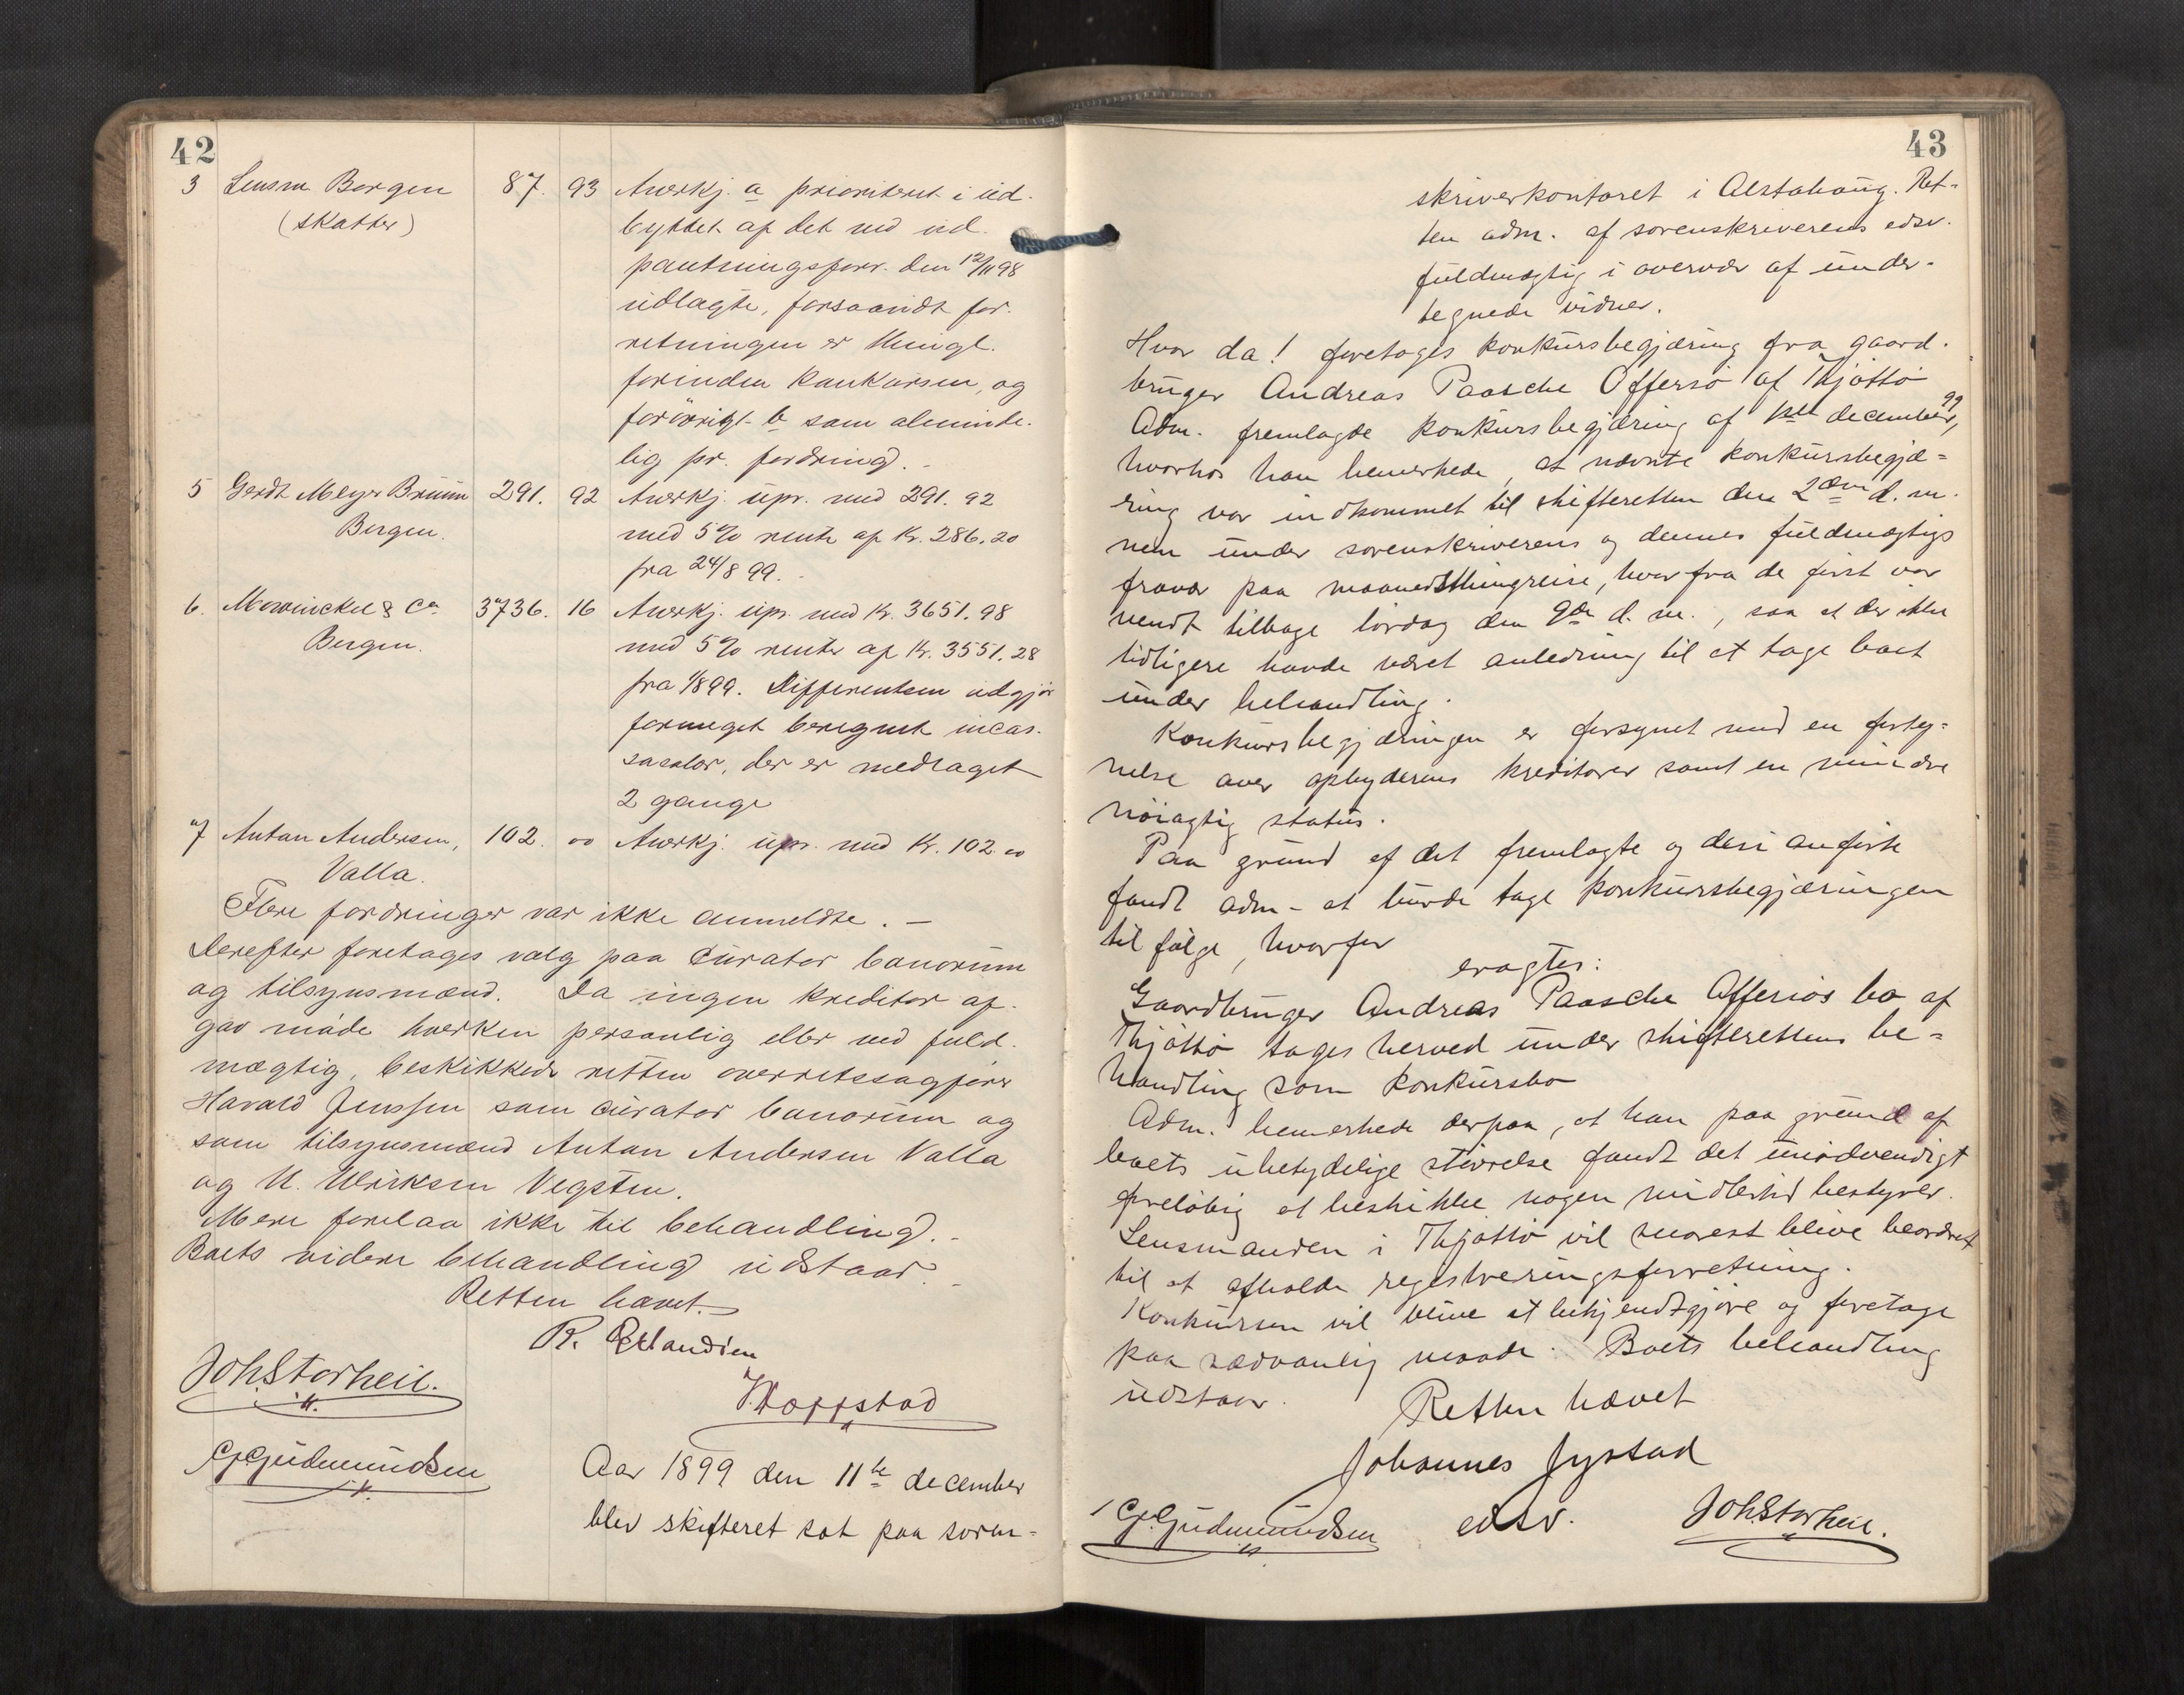 42
3 Lensm Borgen 87. 93 Anerkj. a prioriteret i ud-
(skatter) byttet af det ved ud-
pantningsforr. den 12/11 98
udlagte, forsaavidt for-
retningen er thingl.
forinden konkursen, og
forövrigt b som alminde-
lig pr. fordring. -
5 Gerdt Meyer Bruun 291. 92 Anerkj. upr. med 291. 92
Bergen. med 5% rente af Kr. 286.20
fra 24/8 99.
6. Mowinckel & Co 3736. 16 Anerkj. upr. med Kr. 3651.98
Bergen. med 5% rente af Kr. 3551.28
fra 1/8 99. Differentsen udgjör
formeget beregnet incas-
sosalær, der er medtaget
2 gange
7 Anton Andersen, 102. 00 Anerkj. upr. med Kr. 102.00
Valla.
Flere fordringer var ikke anmeldte. -
Derefter foretages valg paa curator bonorum
og tilsynsmænd. Da ingen kreditor af-
gav möde hverken personlig eller ved fuld-
mægtig, beskikkede retten overretssagförer
Harald Jenssen som curator bonorum og
som tilsynsmænd Anton Andersen Valla
og U. Ulriksen Vegsten.
Mere forelaa ikke til behandling. -
Boets videre behandling udstaar. -
Retten hævet.
R. Erlandsen
Joh. Storheil.
C. Gudmundsen
Aar 1899 den 11te december
blev skifteret sat paa soren-
43
skriverkontoret i Alstahaug. Ret-
ten adm. af sorenskriverens edsv.
fuldmægtig i overvær af under-
tegnede vidner.
Hvor da! foretoges konkursbegjæring fra gaard-
bruger Andreas Paasche Offersö af Thjöttö
Adm. fremlagde konkursbegjæring af 1ste december 99,
hvorhos han bemerkede, at nævnte konkursbegjæ=
ring var indkommet til skifteretten den 2den d. m.
men under sorenskriverens og dennes fuldmægtigs
fravær paa maanedsthingreise, hvorfra de först var
vendt tilbage lördag den 9de d. m., saa at der ikke
tidligere havde været anledning til at tage boet
under behandling.
Konkursbegjæringen er forsynet med en forteg=
nelse over opbyderens kreditorer samt en mindre
nöiagtig status.
Paa grund af det fremlagte og deri anförte
fandt adm- at burde tage konkursbegjæringen
til fölge, hvorfor
eragtes:
Gaardbruger Andreas Paasche Offersös bo af
Thjöttö tages herved under skifterettens be=
handling som konkursbo
Adm. bemerkede derpaa, at han paa grund af
boets ubetydelige störrelse fandt det unödvendigt
forelöbig at beskikke nogen midlertid bestyrer.
Lensmanden i Thjöttö vil snarest blive beordret
til at afholde registreringsforretning.
Konkursen vil blive at bekjendtgjöre og foretage
paa sædvanlig maade. Boets behandling
udstaar. Retten hævet
Johannes Jystad
C. Gudmundsen edsv. Joh. Storheil.